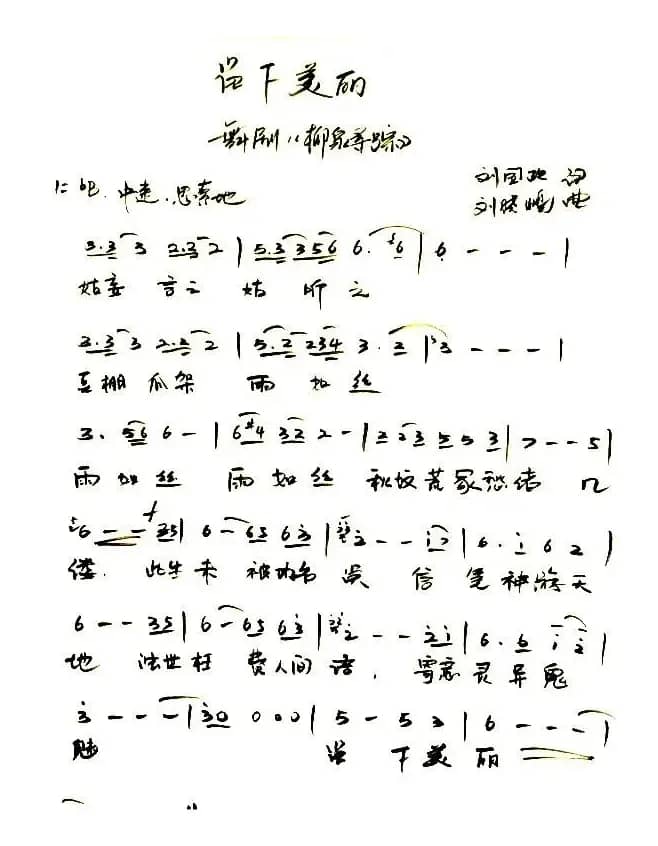 留下美丽
舞剧《柳泉寻踪》
刘国 词
1=bE 中速、思索地
刘 曲
3.3 3 2.3 2 | 5.3 3 5 6 6. 6 | 6 - - - |
姑妄言之 姑听之
3.3 3 2.2 2 | 5.2 2 3 4 3. 2 | 3 - - - |
豆棚瓜架 雨如丝
3. 56 6 - | 6#4 32 2 - | 2 23 5 5 3 | 7 - - 5 |
雨如丝 雨如丝 秋坟荒冢愁绪几
6 - - 35 | 6 - 65 63 | 2 - - 17 | 6. 1 6 2 |
缕. 此生未被功名误 信笔神游天
6 - - 35 | 6 - 65 63 | 2 - - 21 | 6. 6 1 2 |
地 浊世枉费人间语, 寄意灵异鬼
3 - - - | 30 0 0 0 | 5 - 5 3 | 6 - - - |
魅 留下美丽